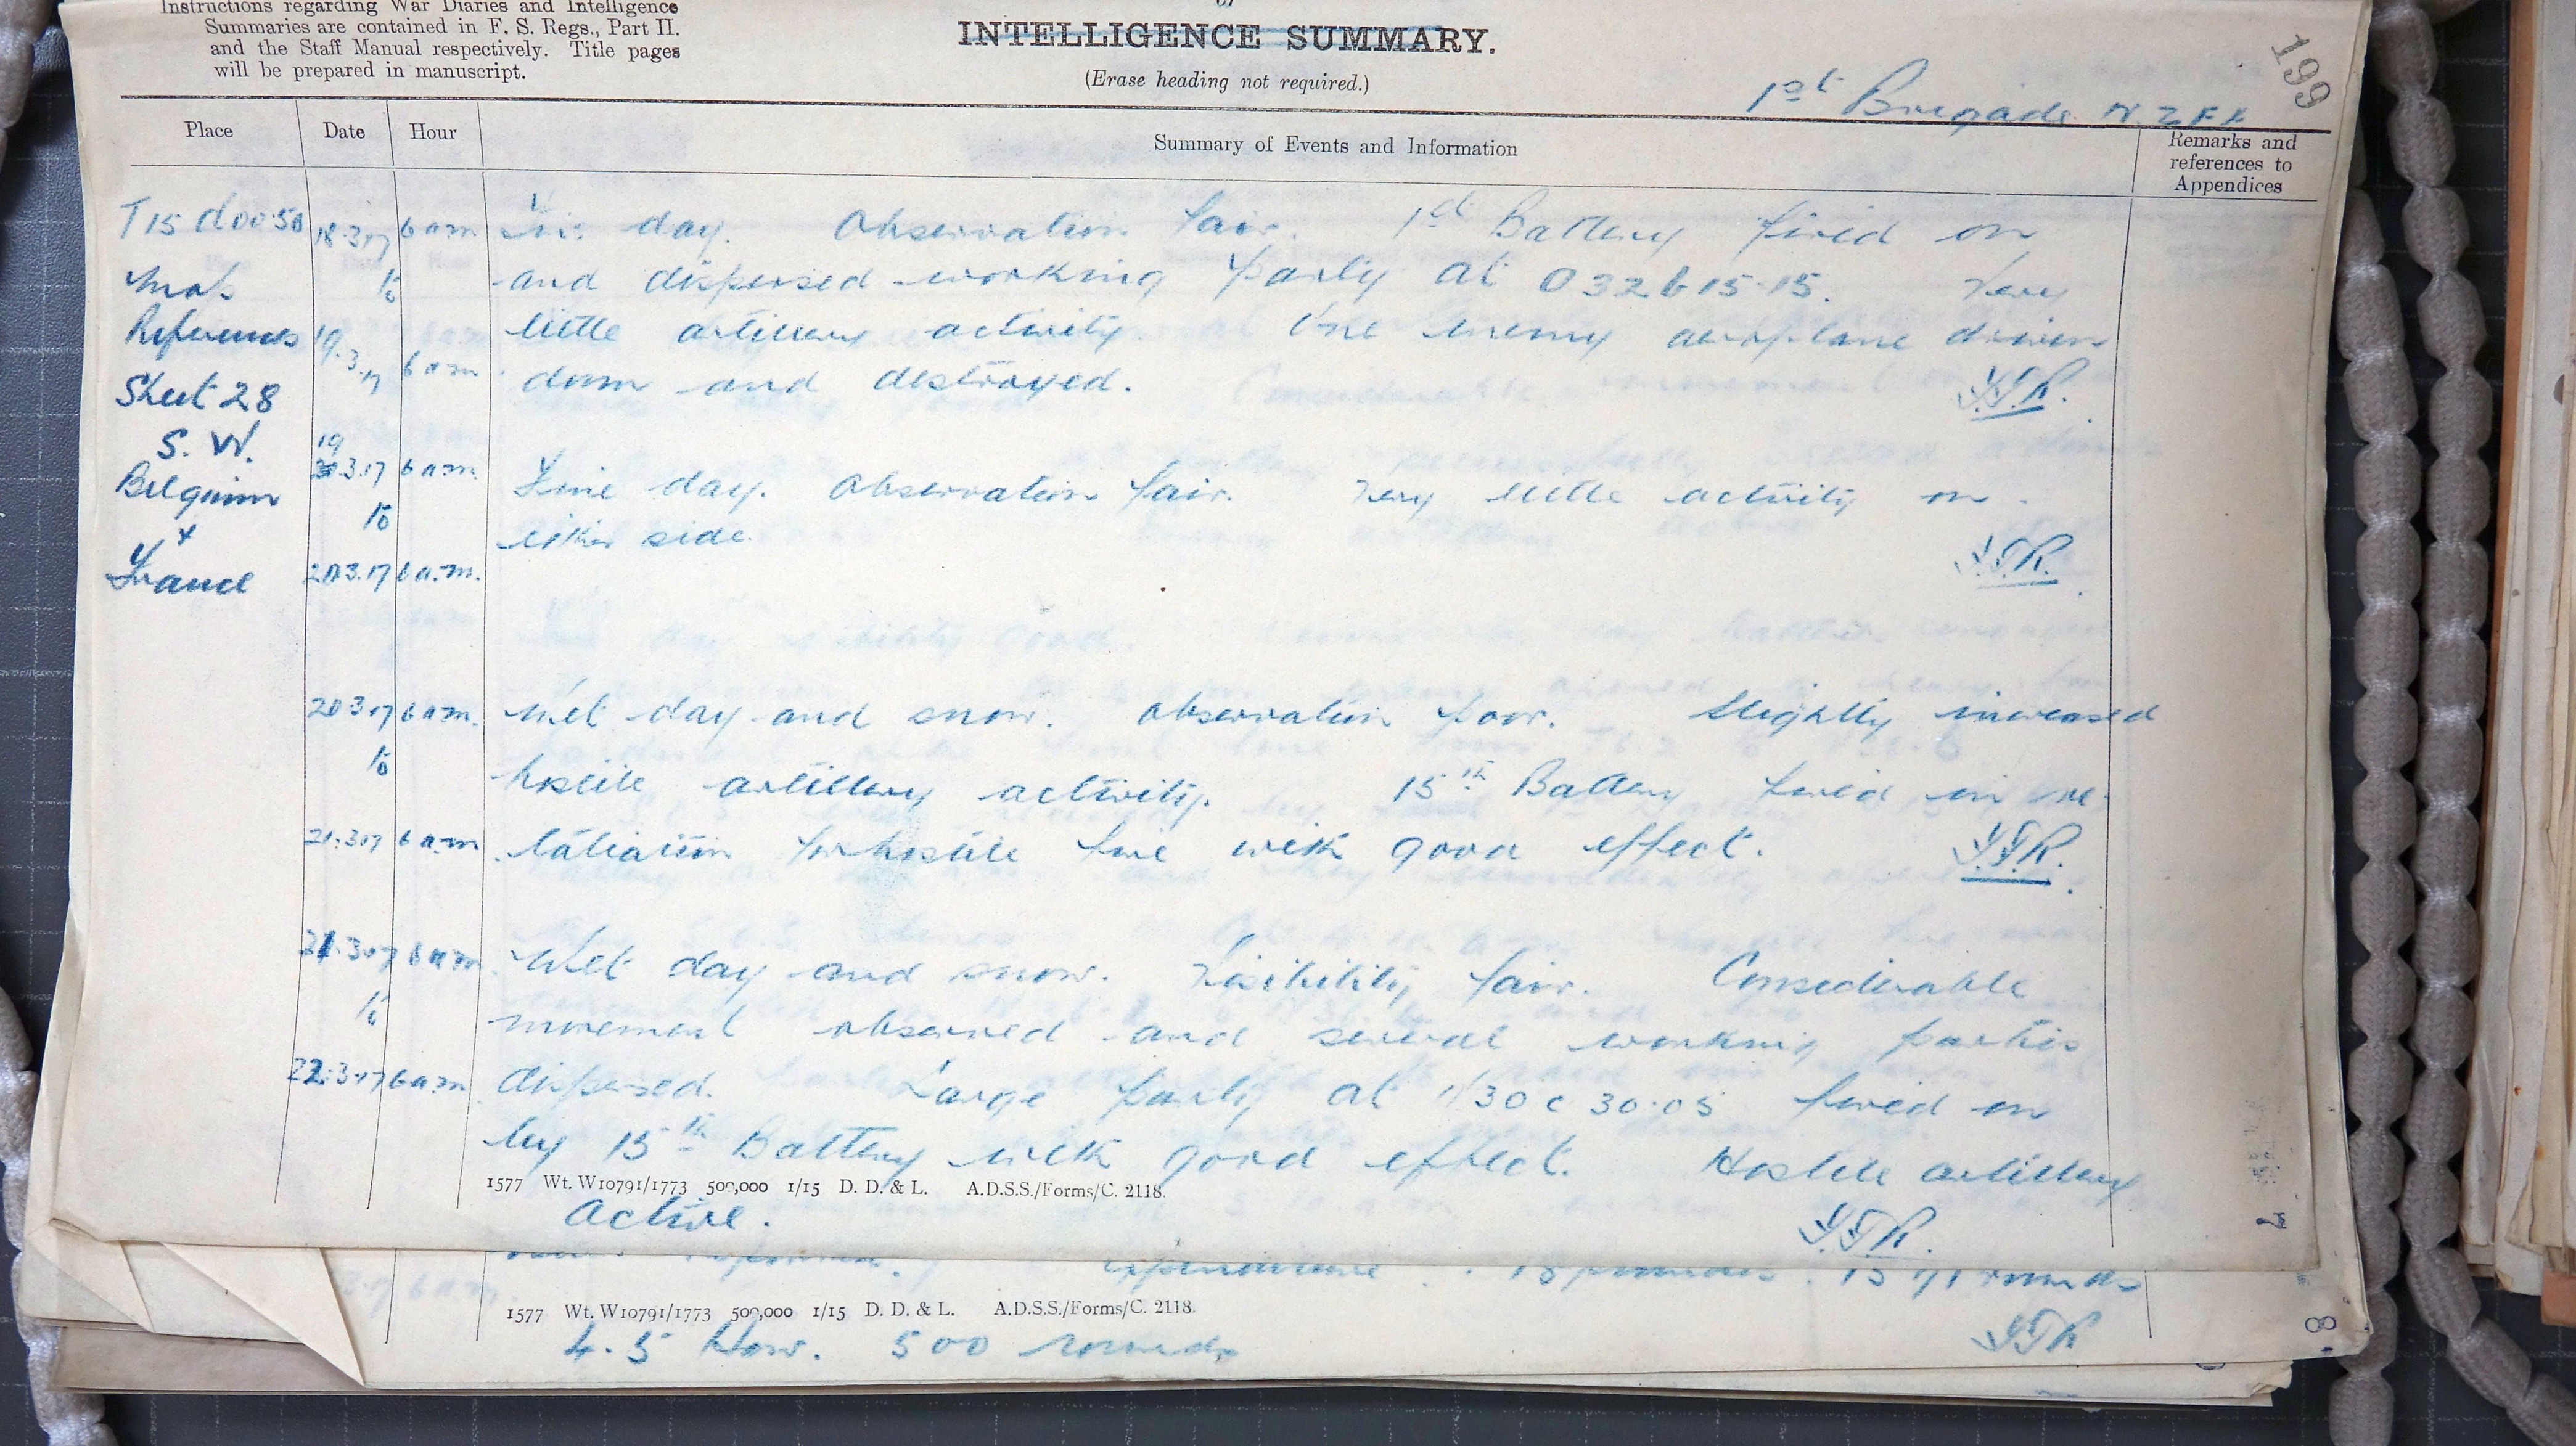 Instructions regarding War Diaries and Intelligence
Summaries are contained in F. S. Regs., Part II.
and the Staff Manual respectively. Title pages
will be prepared in manuscript.
or
INTELLIGENCE SUMMARY.
(Erase heading not required.)
1st Brigade N.Z.F.A.
199
Place Date Hour Summary of Events and Information Remarks and references to Appendices
T15 d 00.50 18.3.17 6 am Fine day. Observation fair. 1st Battery fired on
Map to and dispersed working party at O 32 b 15.15. Very
References 19.3.17 6 am little artillery activity. One enemy aeroplane driven
Sheet 28 down and destroyed.
S. W. 19
Belgium 3.17 6 am Fine day. Observation fair. Very little activity on
+ to either side.
France 20.3.17 6 a.m.
20.3.17 6 am. Wet day and snow. Observation poor. Slightly increased
to hostile artillery activity. 15th Battery fired in re-
21.3.17 6 am taliation for hostile fire with good effect.
21.3.17 6 am Wet day and snow. Visibility fair. Considerable
to movement observed and several working parties
22.3.17 6 am dispersed. Large party at 30 c 30.05 fired on
by 15th Battery with good effect. Hostile artillery
1577 Wt. W10791/1773 500,000 1/15 D. D. & L. A.D.S.S./Forms/C. 2118.
active.
7
Expenditure. 18 pounders. rounds
1577 Wt. W10791/1773 500,000 1/15 D. D. & L. A.D.S.S./Forms/C. 2118.
4.5 How. 500 rounds
8